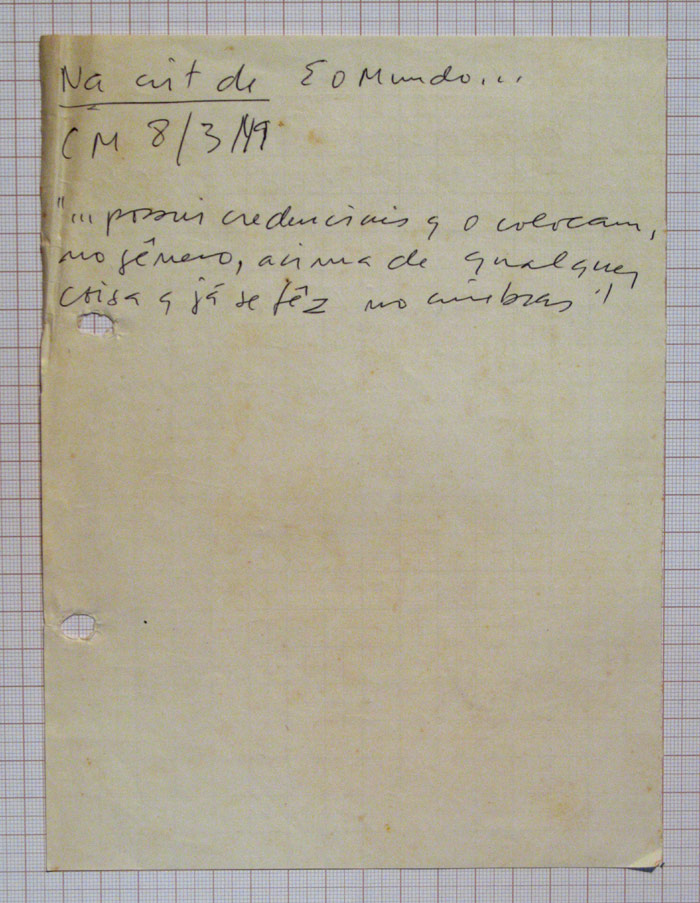 Na crit de E o Mundo...
CM 8/3/49
"... possui credenciais q o colocam,
no gênero, acima de qualquer
coisa q já se fêz no cinebras"!